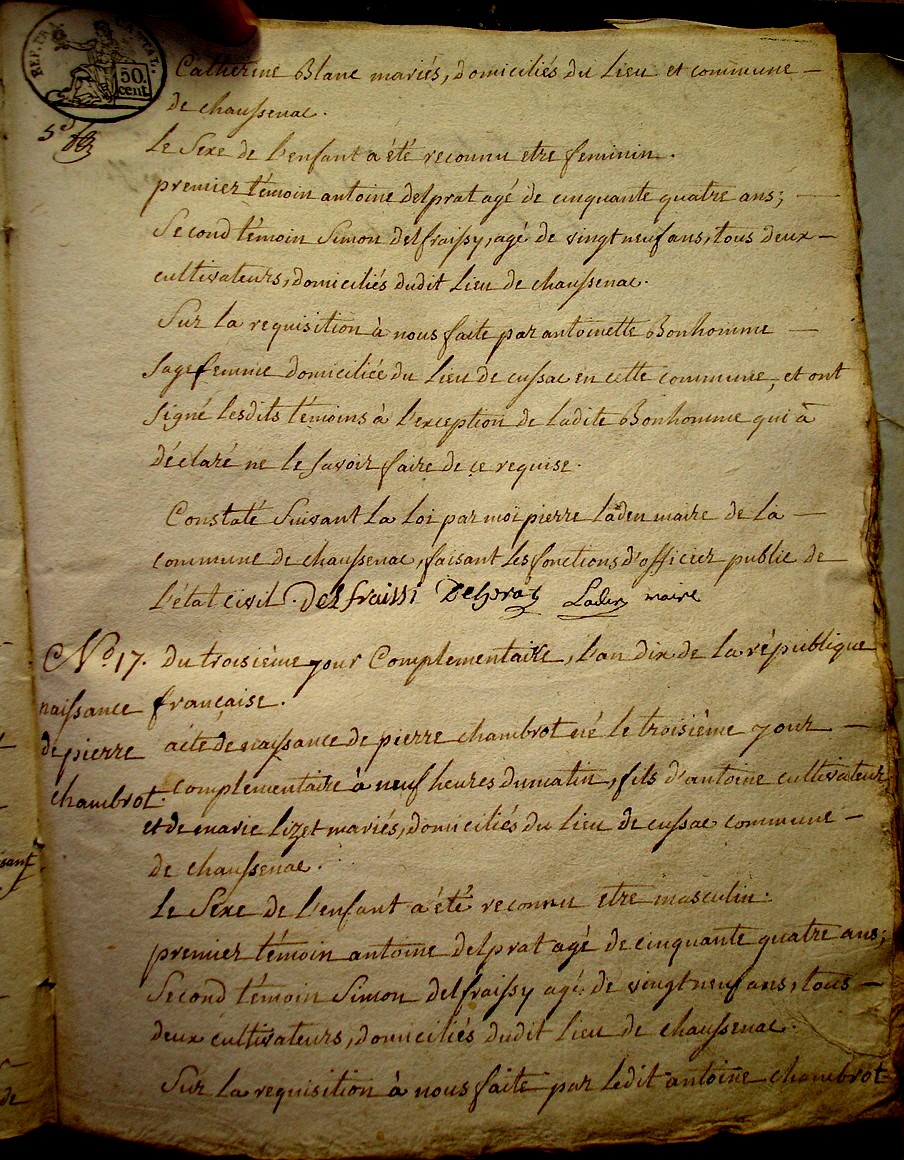 REP. FRA
50.
cent
Catherine Blanc mariés, domiciliés du Lieu et commune —
de chaussenac.
Le Sexe de l'enfant a été reconnu etre feminin.
premier témoin antoine delprat agé de cinquante quatre ans; —
Second témoin Simon delfraissy, agé de vingt neuf ans, tous deux —
cultivateurs, domiciliés dudit Lieu de chaussenac.
Sur La requisition à nous faite par antoinette Bonhomme —
Sage femme domiciliée du Lieu de cussac en cette commune, et ont
signé lesdits témoins à l'exception de ladite Bonhomme qui à
déclaré ne le savoir faire de ce requise.
Constaté Suivant La Loi par moi pierre laden maire de la —
commune de chaussenac, faisant les fonctions d'officier public de
L'état civil. Delfraissi Delprat Laden maire
N.º 17. Du troisième jour Complementaire, l'an dix de La république
naissance française.
de pierre acte de naissance de pierre chambrot né le troisième jour —
chambrot. complementaire à neuf heures du matin, fils d'antoine cultivateur
et de marie lizet mariés, domiciliés du Lieu de cussac commune —
de chaussenac.
Le Sexe de L'enfant a été reconnu etre masculin.
premier témoin antoine delprat agé de cinquante quatre ans;
Second témoin Simon delfraissy agé de vingt neuf ans, tous —
deux cultivateurs, domiciliés dudit Lieu de chaussenac.
Sur La requisition à nous faite par ledit antoine chambrot